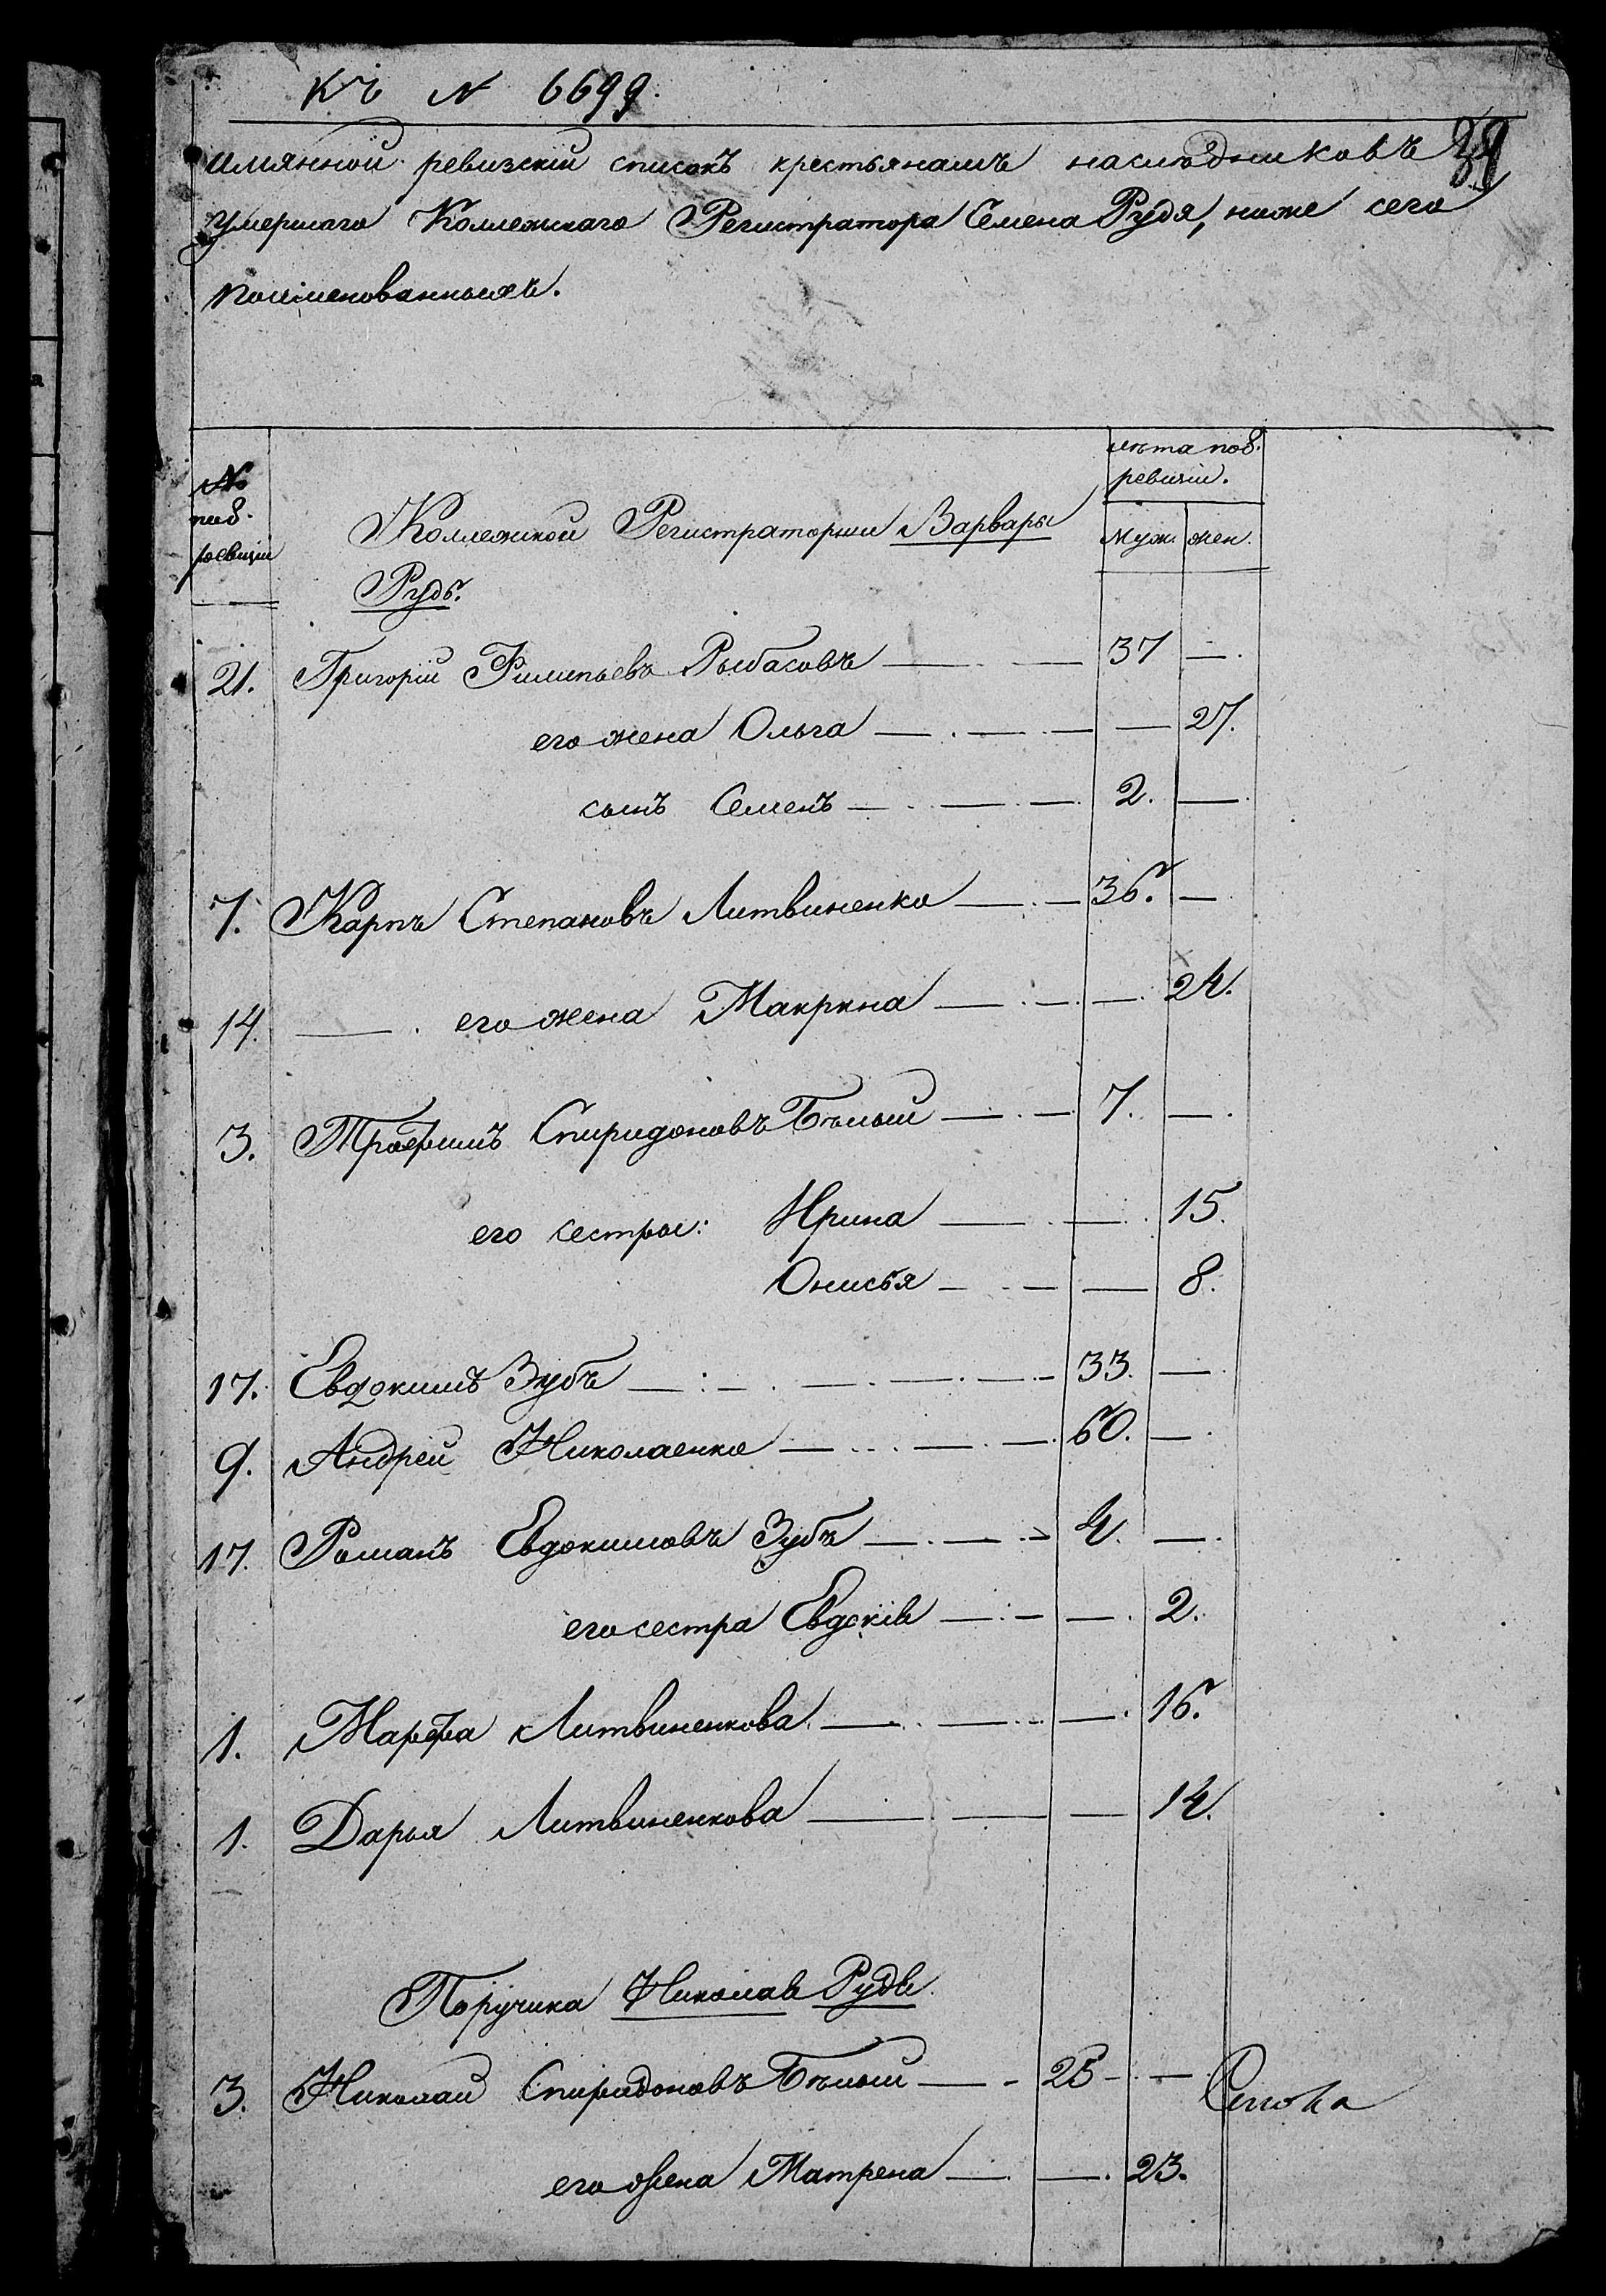 Къ N 6699.
39
Имянной ревизскій списокъ крестьянамъ наслѣдниковъ
умершаго Коллежскаго Регистратора Семена Рудя, ниже сего
поименованныхъ.
№ по 8. ревизіи
лѣта по 8. ревизіи.
муж. жен.
Коллежской Регистраторши Варвары
Рудь.
21. Григорій Филипьевъ Рыбасовъ — 37 —
его жена Ольга — — 27.
сынъ Семенъ — 2. —
7. Карпъ Степановъ Литвиненко — 36. —
14. — его жена Макрина — — 24.
3. Трофимъ Спиридоновъ Бѣлый — 7. —
его сестры: Ирина — — 15.
Онисья — — 8.
17. Евдокимъ Зубъ — 33. —
9. Андрей Николаенко — 60. —
17. Романъ Евдокимовъ Зубъ — 4. —
его сестра Евдокія — — 2.
1. Марфа Литвиненкова — — 16.
1. Дарья Литвиненкова — — 14.
Поручика Николая Рудя.
3. Николай Спиридоновъ Бѣлый — 25 —
его жена Матрена — — 23.